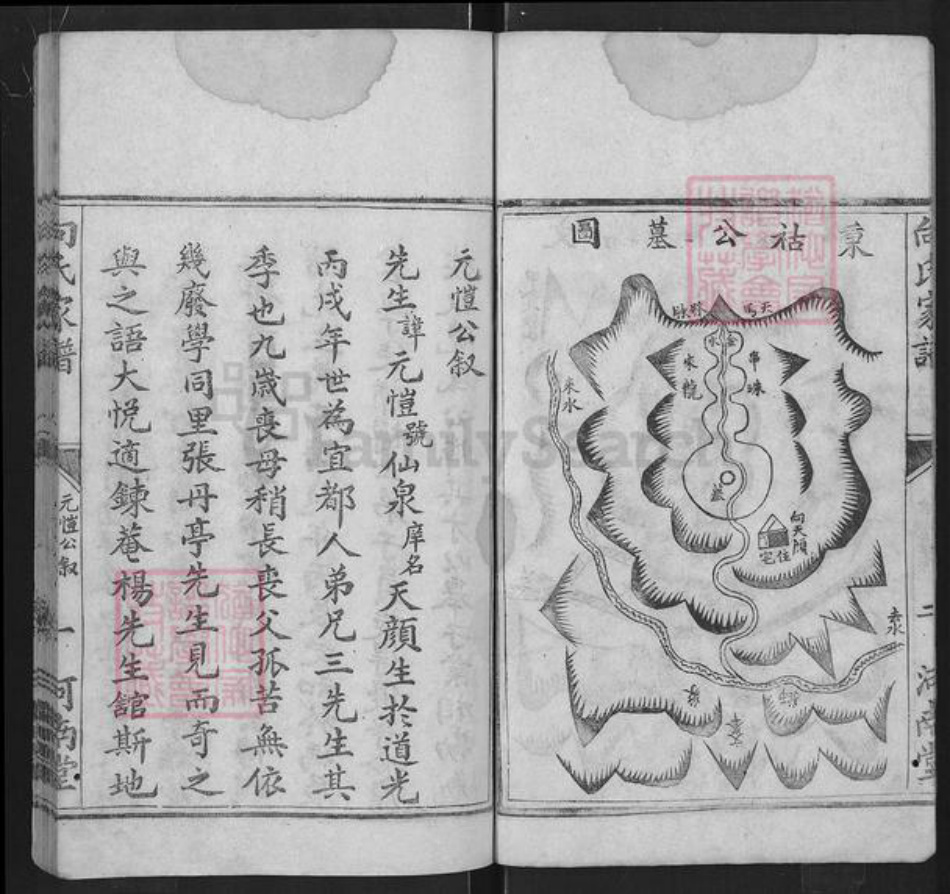 向氏家譜
二
河南堂
秉祜公墓圖
天馬
金水
串珠
來龍
來水
墓
向天顏
住宅
來水
元愷公叙
先生諱元愷號仙泉庠名天顏生於道光
丙戌年世為宜都人弟兄三先生其
季也九歲喪母稍長喪父孤苦無依
幾廢學同里張丹亭先生見而奇之
與之語大悅適鍊菴楊先生舘斯地
向氏家譜
元愷公叙
一
河南堂
FamilySearch